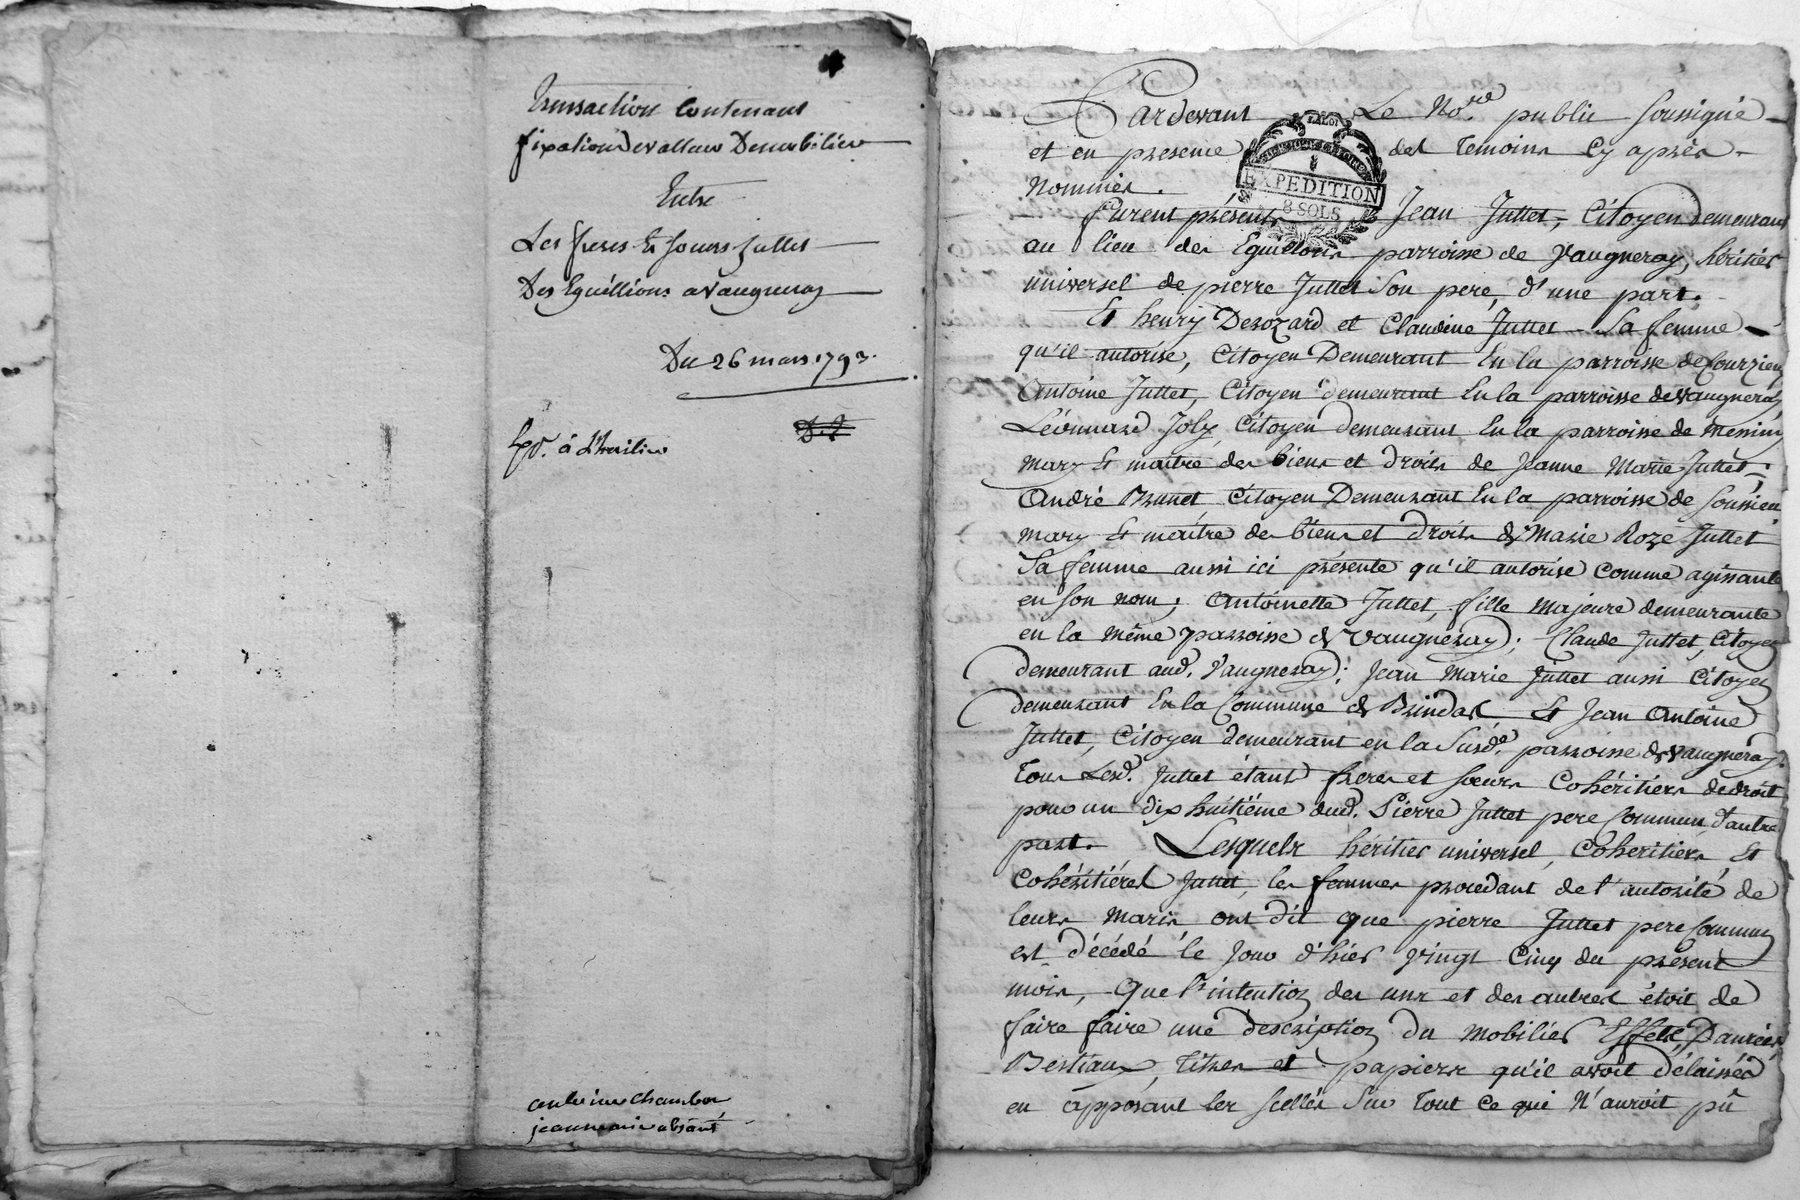 Transaction Contenant
fixation de valleur Du mobilier
Entre
Les freres & soeurs Juttet
Des Eguillions a Vaugneray
Du 26 mars 1793.
Exp. à l'heritier
antoine chambe
jean marie absant
Pardevant Le No.re public soussigné
et en presence des temoins cy après
Nommés.
LA LOI
EXPEDITION
8 SOLS
furent présents Jean Juttet, Citoyen demeurant
au lieu des Eguillons parroisse de Vaugneray, héritier
universel de pierre Juttet Son pere, d'une part.
Et henry Desozard et Claudine Juttet Sa femme
qu'il autorise, Citoyen Demeurant En la parroisse de Courzieu
Antoine Juttet, Citoyen demeurant En la parroisse de Vaugneray
Léonnard Joly, Citoyen demeurant En la parroisse de Messimy
mary Et maitre des biens et droits de Jeanne Marie Juttet;
André Brunet, Citoyen Demeurant En la parroisse de Soussieu
mary Et maitre des biens et droits de Marie Roze Juttet
Sa femme aussi ici présente qu'il autorise comme agissante
en son nom; Antoinette Juttet, fille majeure demeurante
en la même parroisse de Vaugneray; Claude Juttet, Citoyen
demeurant aud. Vaugneray; Jean Marie Juttet aussi Citoyen
demeurant En la Commune de Brindas, Et Jean Antoine
Juttet, Citoyen demeurant en la Susd.e parroisse de Vaugneray.
tous Lesd. Juttet étant freres et soeurs Cohéritiers de droit
pour un dix huitiéme dud. Pierre Juttet pere Commun d'autre
part. Lesquels héritier universel, Coheritiers Et
Cohéritiéres Juttet, les femmes procedant de l'autorité de
leurs maris ont dit que pierre Juttet pere Commun
est décédé le jour d'hier vingt Cinq du présent
mois, Que l'intention des uns et des autres étoit de
faire faire une description du mobilier Effets, Danrées,
Bestiaux, titres et papiers qu'il avoit délaissés
en apposant les scellés Sur tout ce qui N'auroit pû